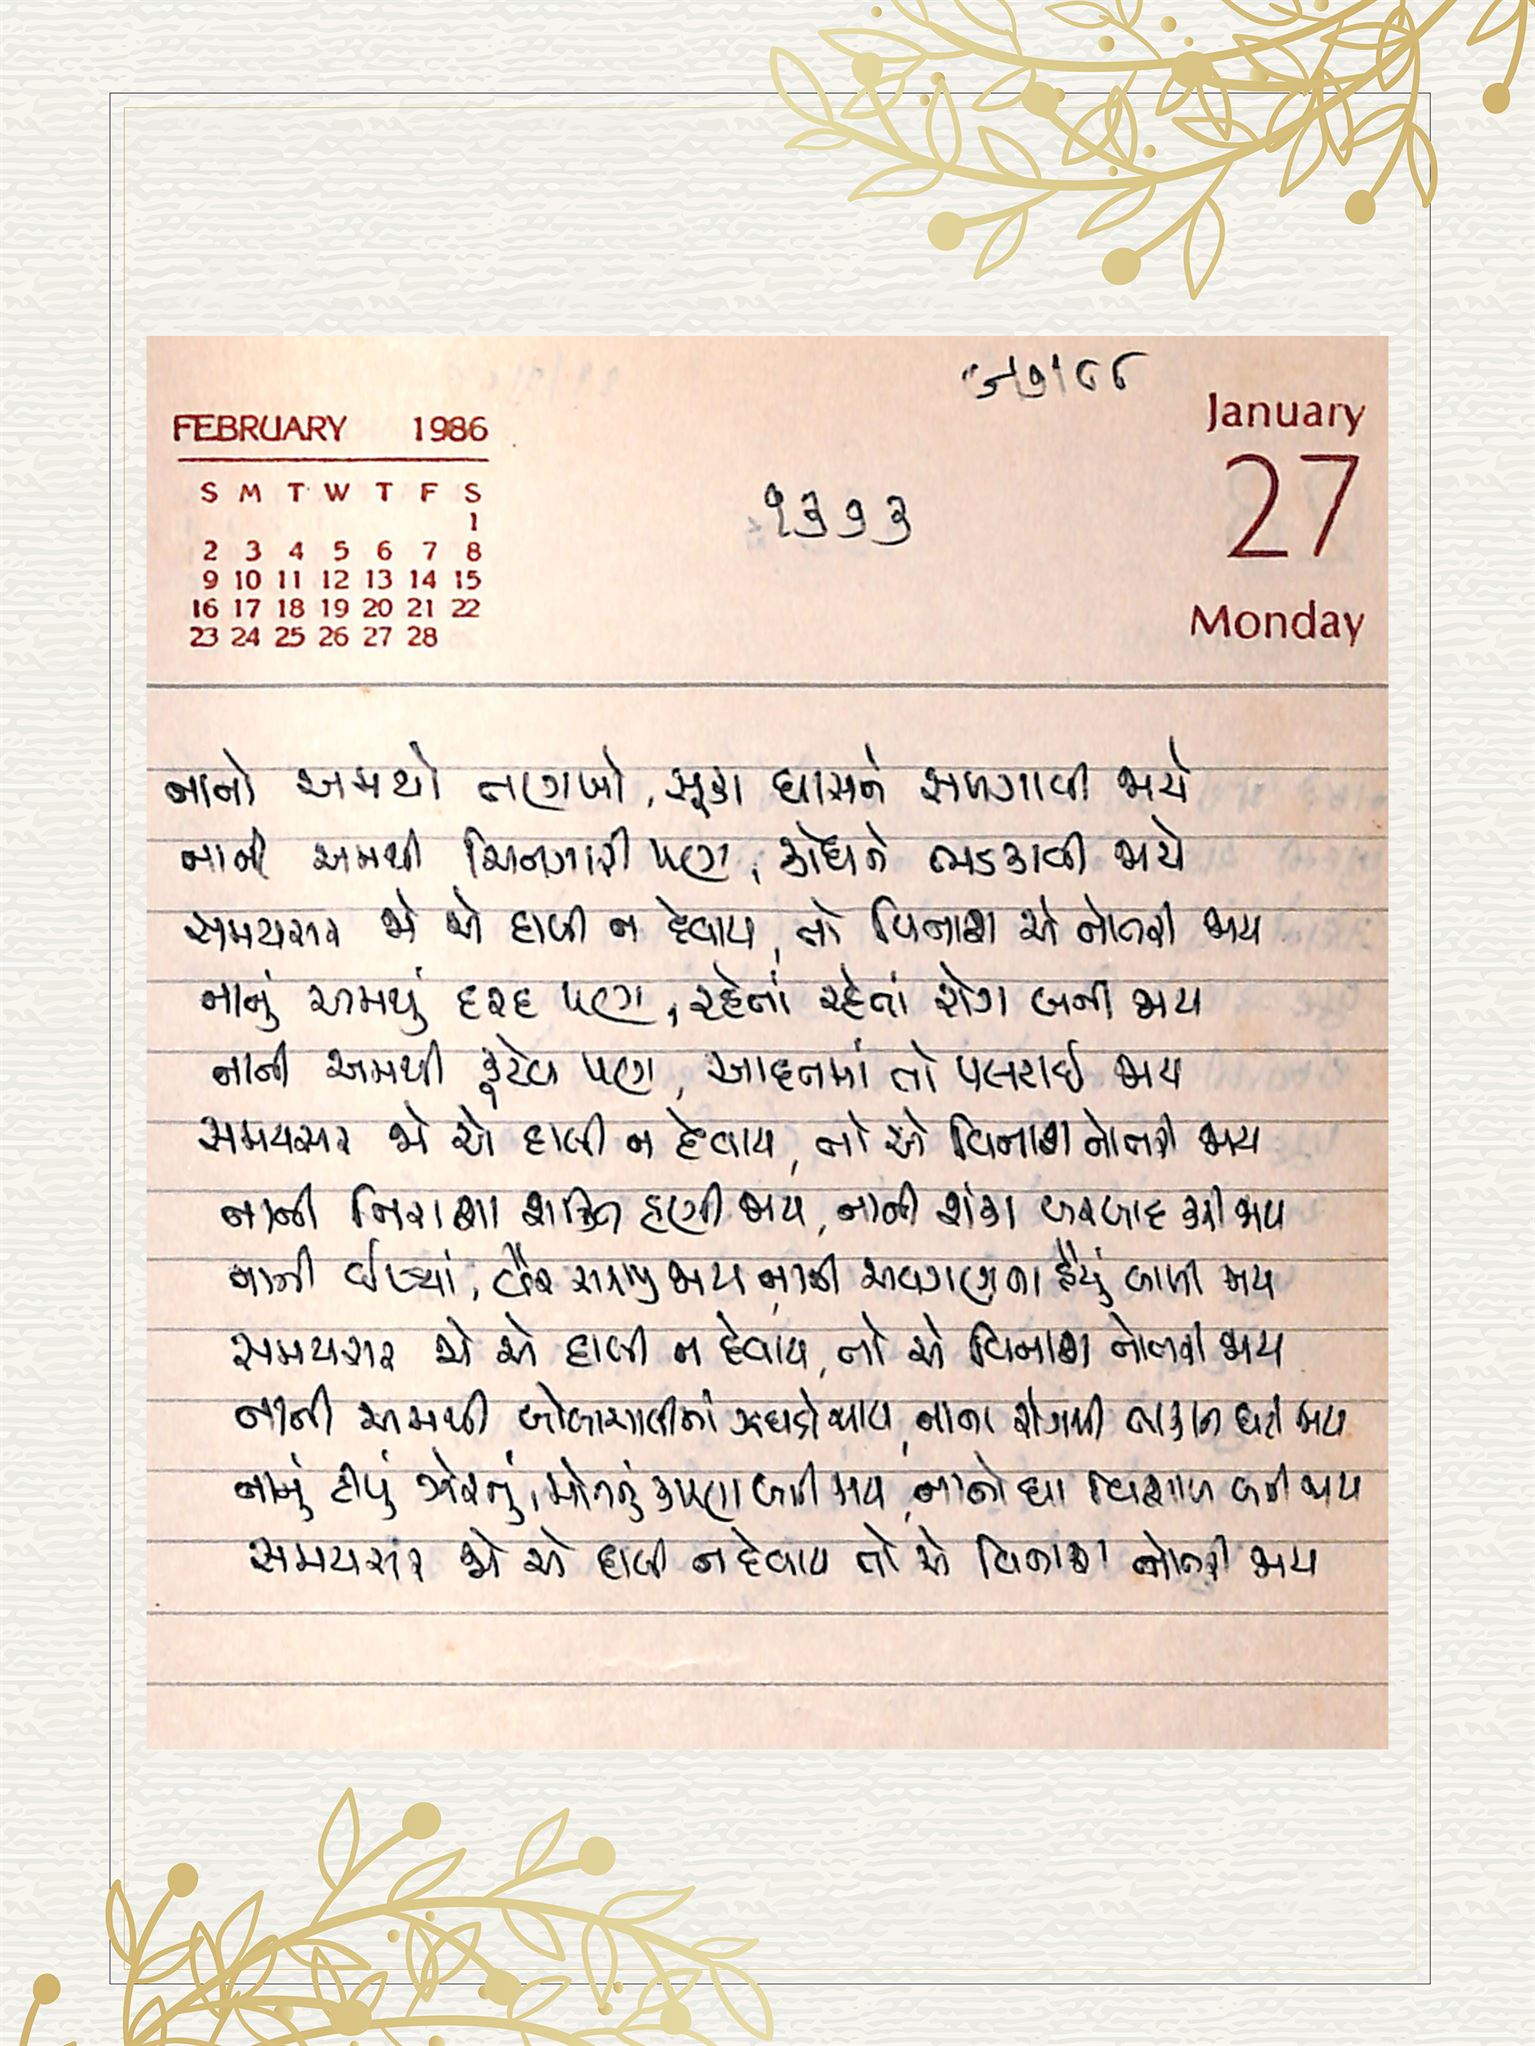 January
FEBRUARY 1986
27
S M T W T F S
૧૩૧૩
1
2 3 4 5 6 7 8
9 10 11 12 13 14 15
16 17 18 19 20 21 22
Monday
23 24 25 26 27 28
નાનો અમથો તણખો, સૂકા ઘાસને સળગાવી જાયે
નાની અમથી ચિનગારી પણ, ક્રોધને ભડકાવી જાયે
સમયસર જો એ દાબી ન દેવાય, તો વિનાશ એ નોતરી જાય
નાનું અમથું દરદ પણ, રહેતાં રહેતાં રોગ બની જાય
નાની અમથી કૂટેવ પણ, આદતમાં તો પલટાઈ જાય
સમયસર જો એ દાબી ન દેવાય, તો એ વિનાશ નોતરી જાય
નાની નિરાશા શક્તિ હણી જાય, નાની શંકા બરબાદ કરી જાય
નાની ઈર્ષ્યા, વૈર જાય નાની અવગણના હૈયું બાળી જાય
સમયસર જો એ દાબી ન દેવાય, તો એ વિનાશ નોતરી જાય
નાની અમથી બોલાચાલીમાં ઝઘડો થાય, નાના રોગથી તાકાત ઘટી જાય
નાનું ટીપું ઝેરનું, મોતનું કારણ બની જાય, નાનો ઘા વિશાળ બની જાય
સમયસર જો એ દાબી ન દેવાય તો એ વિનાશ નોતરી જાય